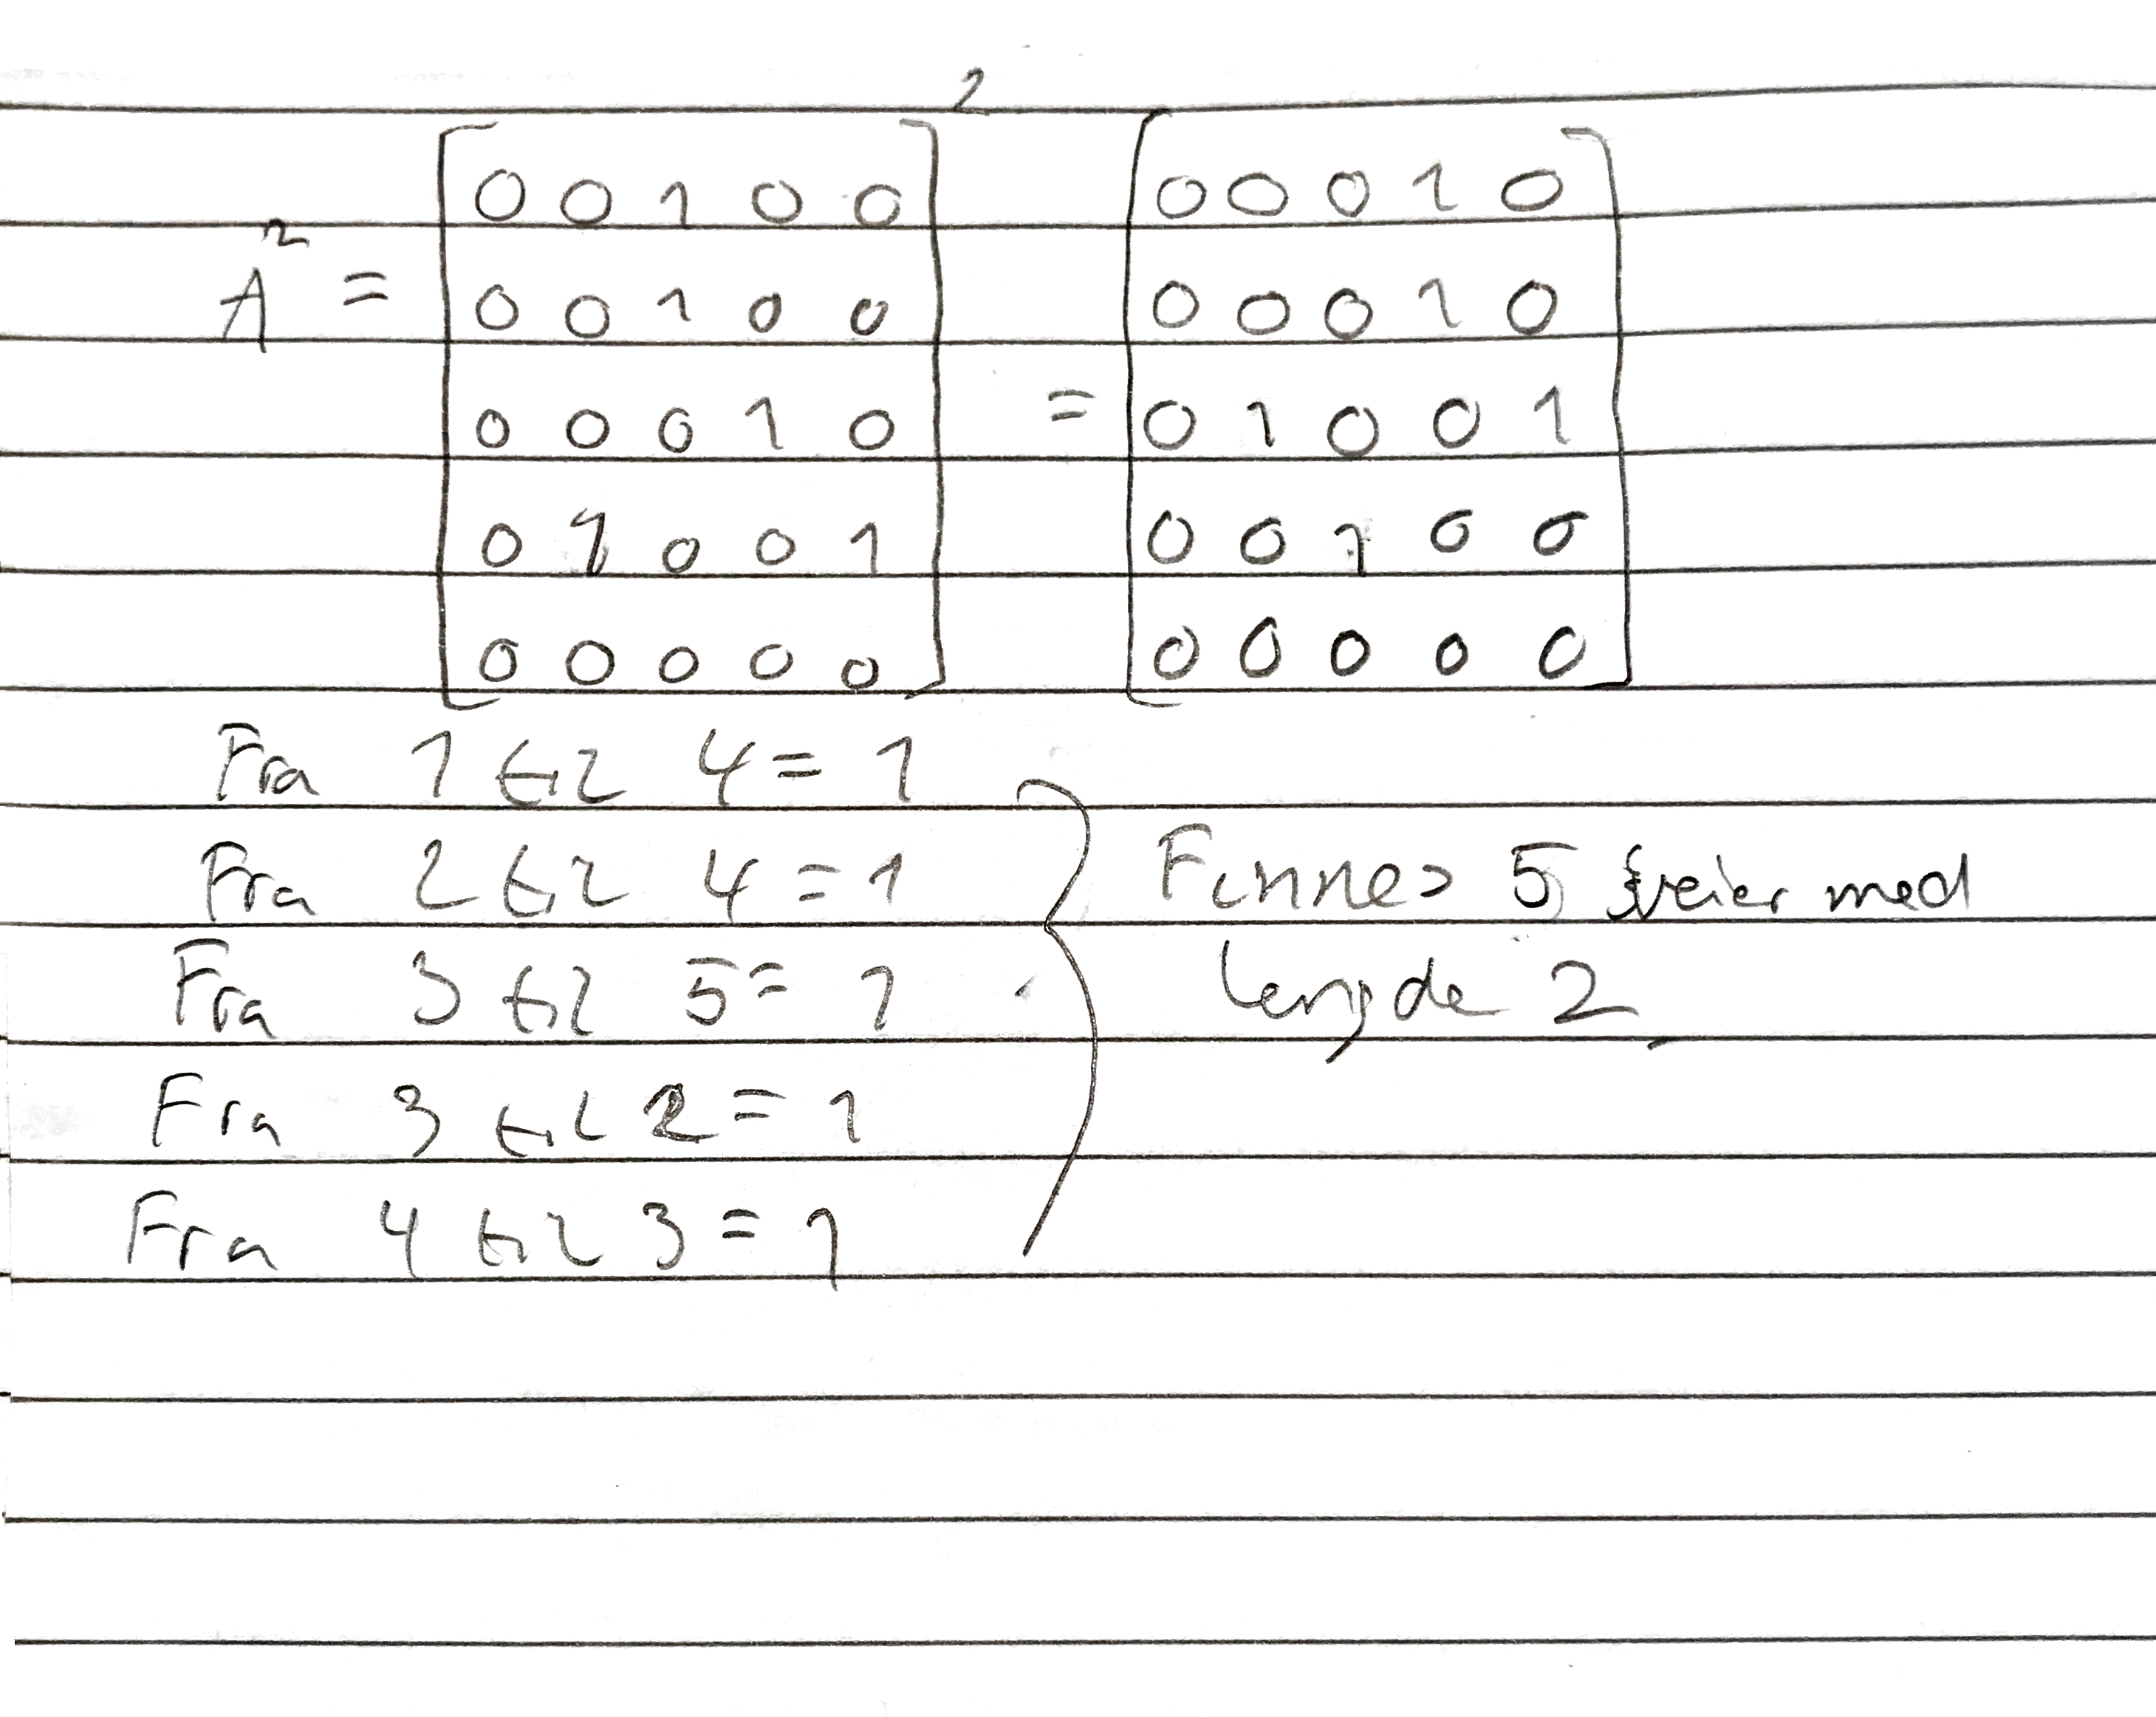 A² = [0 0 1 0 0]² = [0 0 0 1 0]
[0 0 1 0 0] [0 0 0 1 0]
[0 0 0 1 0] [0 1 0 0 1]
[0 1 0 0 1] [0 0 1 0 0]
[0 0 0 0 0] [0 0 0 0 0]
Fra 1 til 4 = 1
Fra 2 til 4 = 1
Fra 3 til 5 = 1
Fra 3 til 2 = 1
Fra 4 til 3 = 1
Finnes 5 veier med
lengde 2